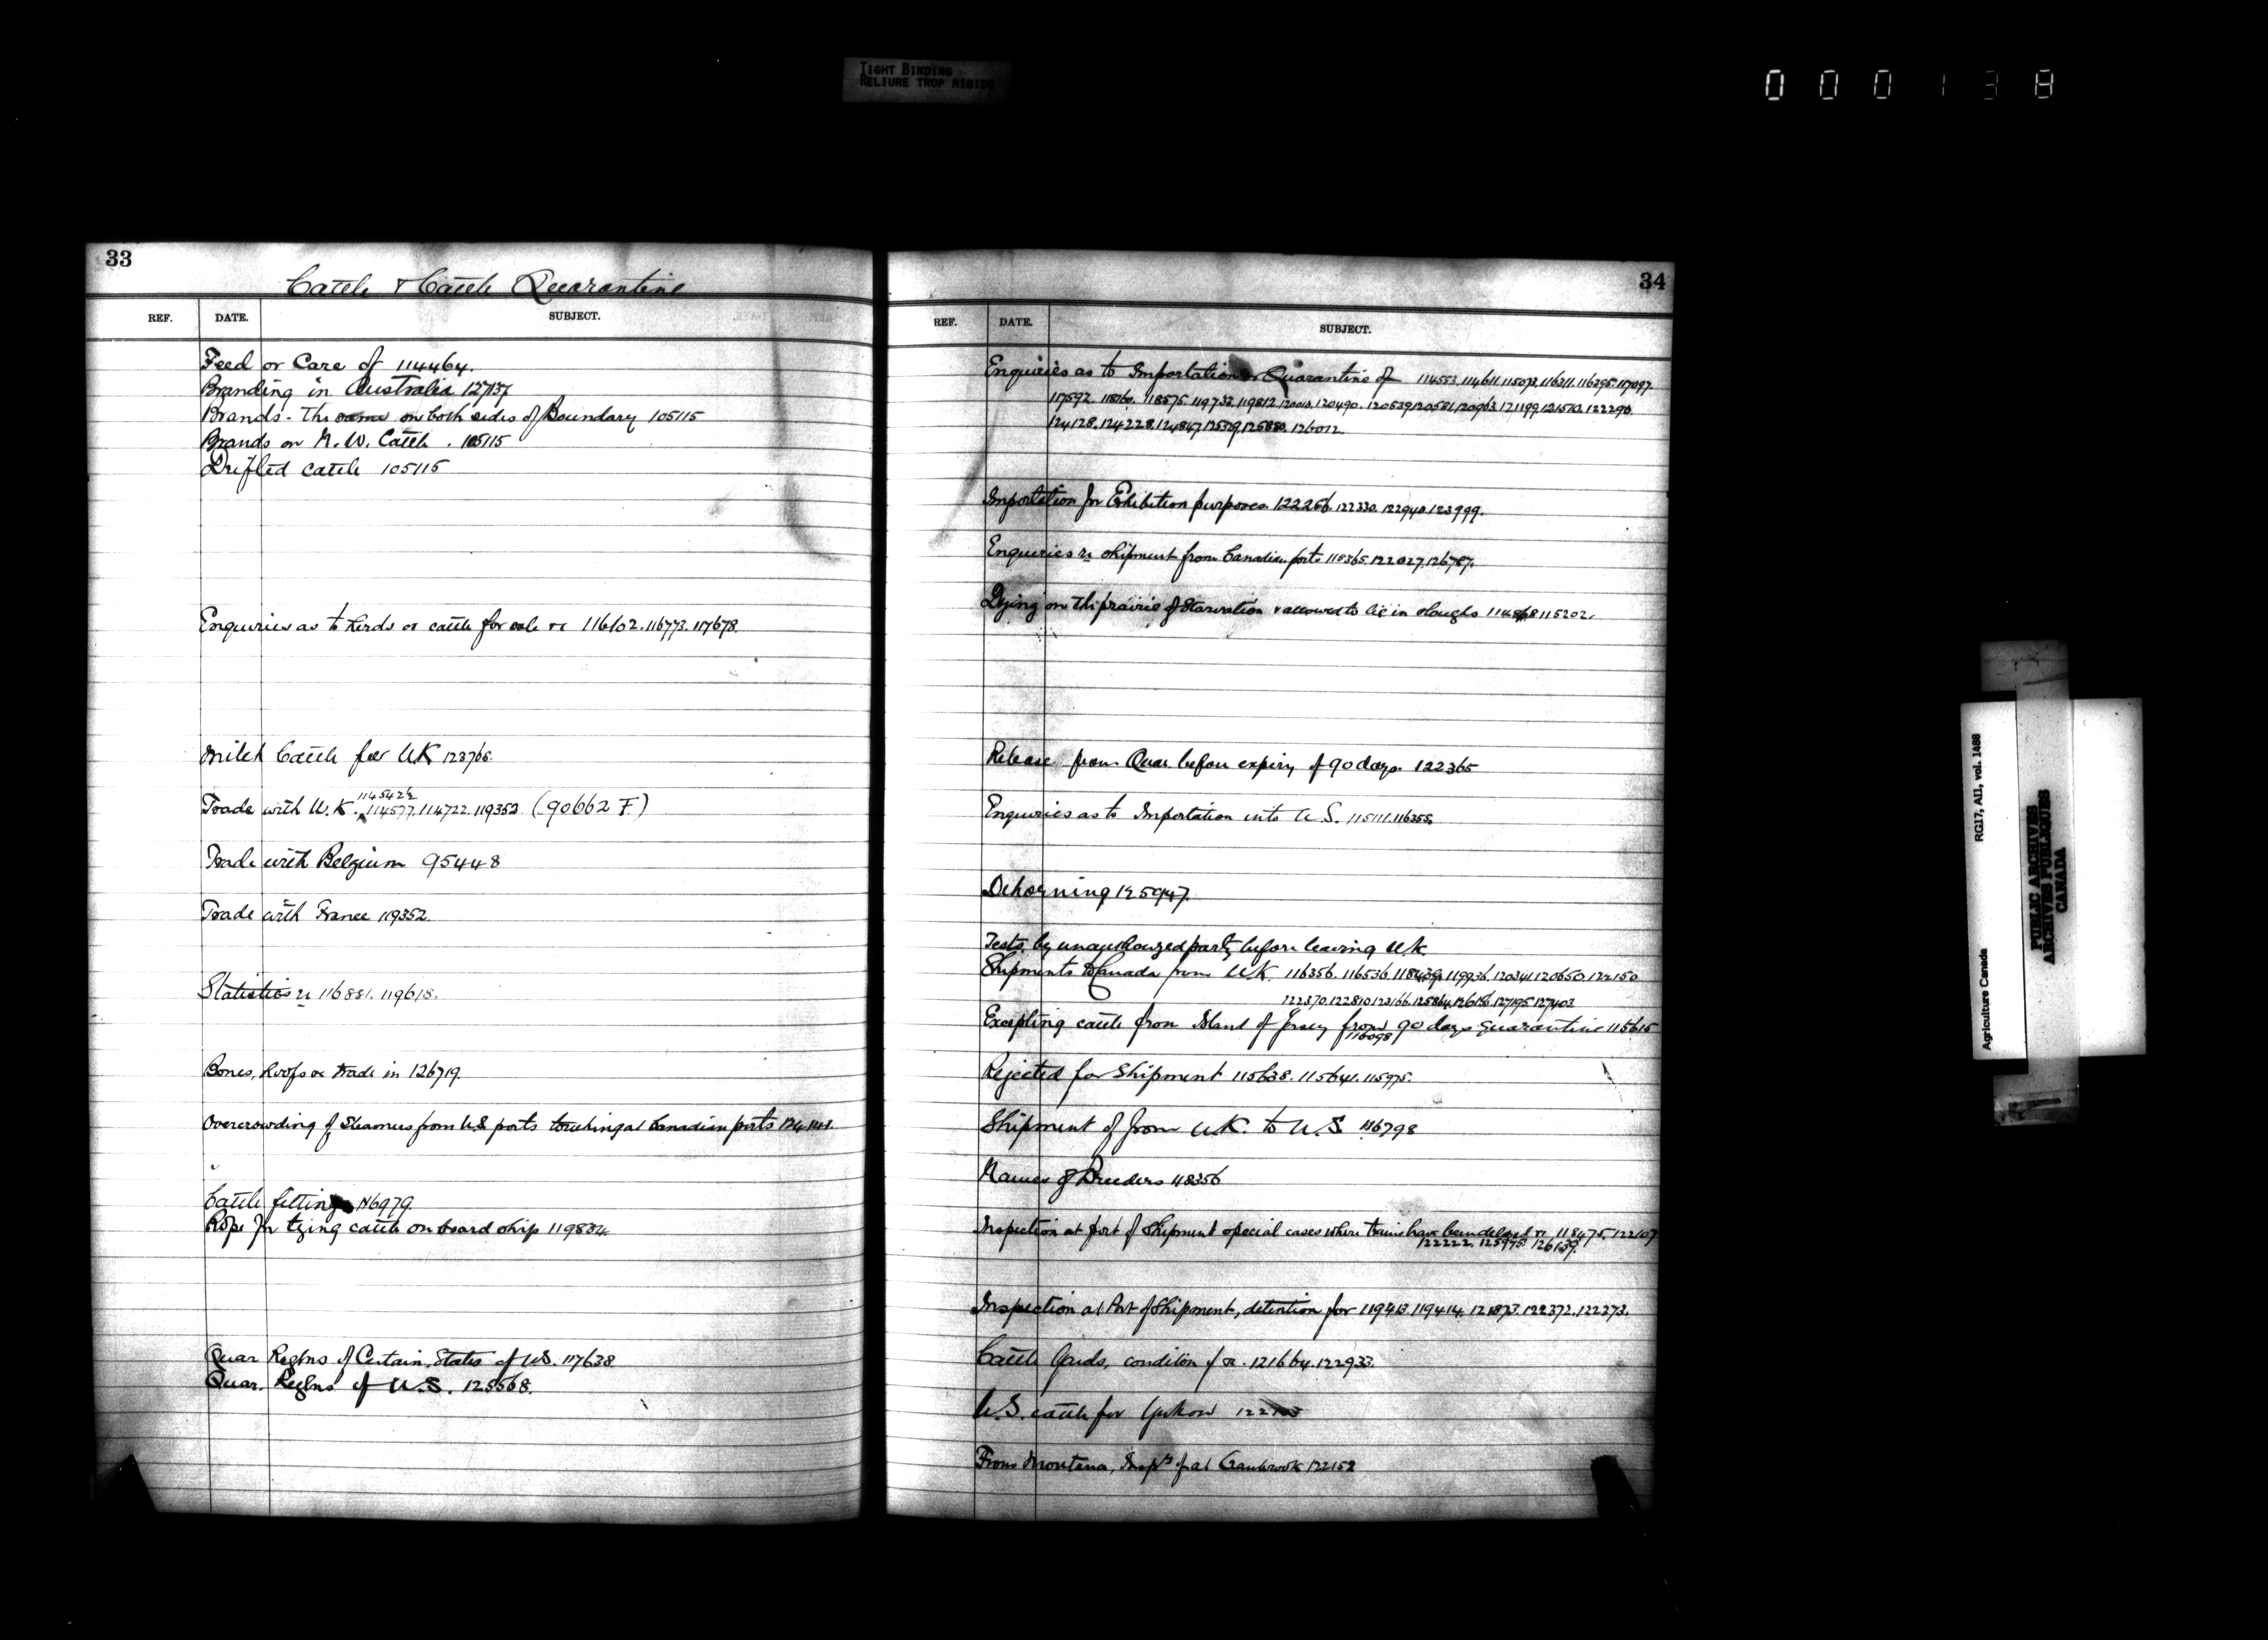 TIGHT BINDING
RELIURE TROP RIGIDE
000138
33
Cattle & Cattle Quarantine
REF. DATE. SUBJECT.
Feed or Care of 114464.
Branding in Australia 127137
Brands - The same on both sides of Boundary 105115
Brands on N.W. Cattle . 105115
Drifted cattle 105115
Enquiries as to herds or cattle for sale re 116102.116773.117678.
Milch Cattle for UK 123765.
114542½
Trade with U.K. 114577.114722.119352 (90662 F.)
Trade with Belgium 95448
Trade with France 119352.
Statistics re 116881. 119618.
Bones, hoofs &c trade in 126719.
Overcrowding of Steamers from U.S. ports touching at Canadian ports
Cattle fittings 116979.
Rope for tying cattle on board ship 119884.
Quar Regtns of Certain States of U.S. 117638
Quar. Regtns of U.S. 125568.
34
REF. DATE. SUBJECT.
Enquiries as to Importation or Quarantine of 114553.114611.115073.116311.116395.117097.
117592. 118160. 118575. 119732.119812.120013.120490. 120539.120581.120963.121199.121510.122290.
124128.124228.124847.125329.125880.126012.
Importation for Exhibition purposes. 122256.122330.122940.123999.
Enquiries re shipment from Canadian ports 118365.122027.126787.
Dying on the prairie of Starvation & allowed to lie in sloughs 115202.
Release from Quar. before expiry of 90 days. 122365
Enquiries as to Importation into U.S. 115111.116355.
Dehorning 125947.
Tests by unauthorized party before leaving U.K.
Shipments to Canada from U.K. 116356. 116536. 118439. 119936. 120341.120650.122150
122370.122810.123166.125864.126156.127195.127403.
Excepting cattle from Island of Jersey from 90 days quarantine 115615
116098
Rejected for Shipment 115638. 115641. 115975.
Shipment of from U.K. to U.S. 116798
Names of Breeders 118356
Inspection at port of Shipment special cases where trains have been delayed &c 118475. 122107
122222. 125975. 126139.
Inspection at Port of Shipment, detention for 119413. 119414. 121873. 122372. 122373.
Cattle Yards, condition of &c. 121664.122933.
U.S. cattle for Yukon
From Montana, Inspn of at Cranbrook 122152
RG17, AII, vol. 1488
Agriculture Canada
PUBLIC ARCHIVES
ARCHIVES PUBLIQUES
CANADA